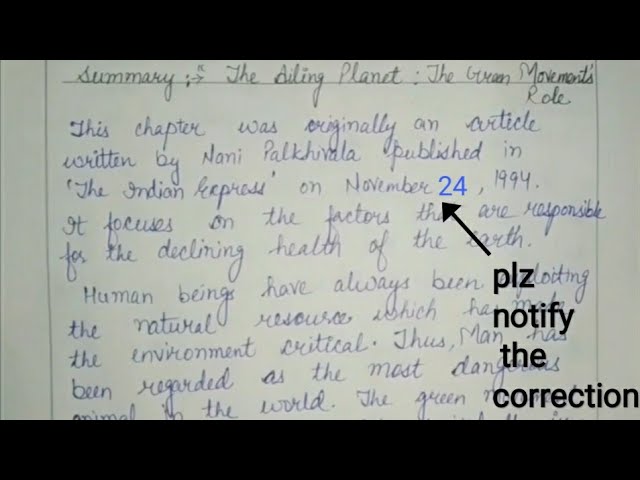 Summary :→ " The Ailing Planet : The Green Movement's
Role
This chapter was originally an article
written by Nani Palkhivala published in
'The Indian Express' on November 24, 1994.
It focuses on the factors that are responsible
for the declining health of the earth.
Human beings have always been exploiting
the natural resource which has made
the environment critical. Thus, Man has
been regarded as the most dangerous
animal in the world. The green
plz
notify
the
correction